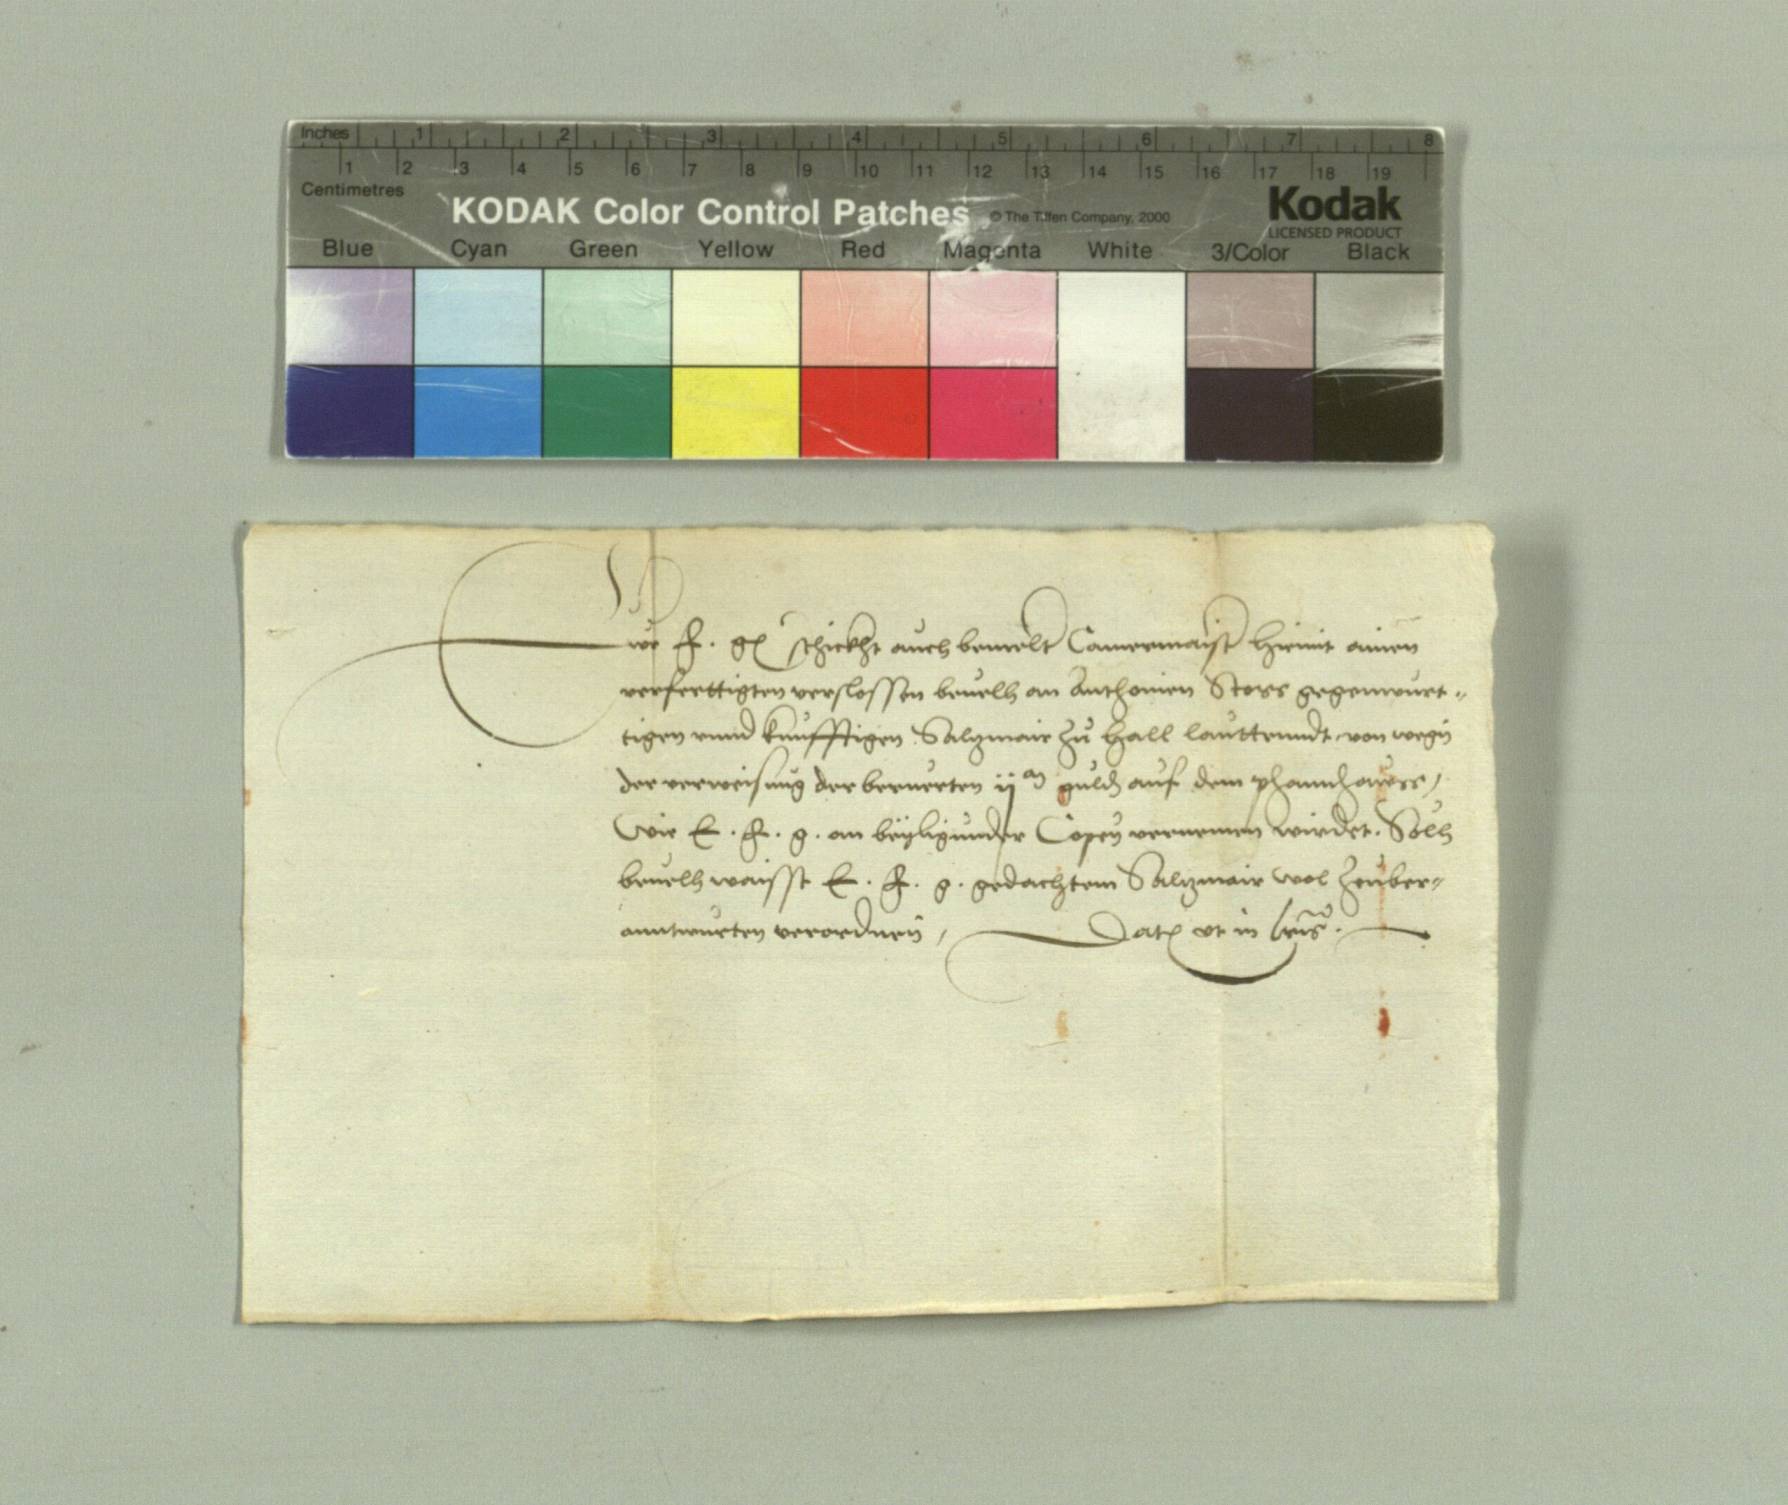 Inches 1 2 3 4 5 6 7 8
1 2 3 4 5 6 7 8 9 10 11 12 13 14 15 16 17 18 19
Centimetres
KODAK Color Control Patches © The Tiffen Company, 2000 Kodak
LICENSED PRODUCT
Blue Cyan Green Yellow Red Magenta White 3/Color Black
Ewr F. g. schickht auch bemelt Camermaist hiemit ainen
verferttigten verslossen beuelh an Anthonien Stoss gegenwurt=
tigen vnnd kunfftigen Saltzmair zu Hall lauttenndt von wegn
der verweisung der berurten ijm guld auf dem phannhauss,
Wie E. F. g. an beyligunder Copey vernemen wirdet. Solh
beuelh waisst E. F. g. gedachtem Saltzmair wol zeuber=
anntwurten verordnen, Dat vt in lris.